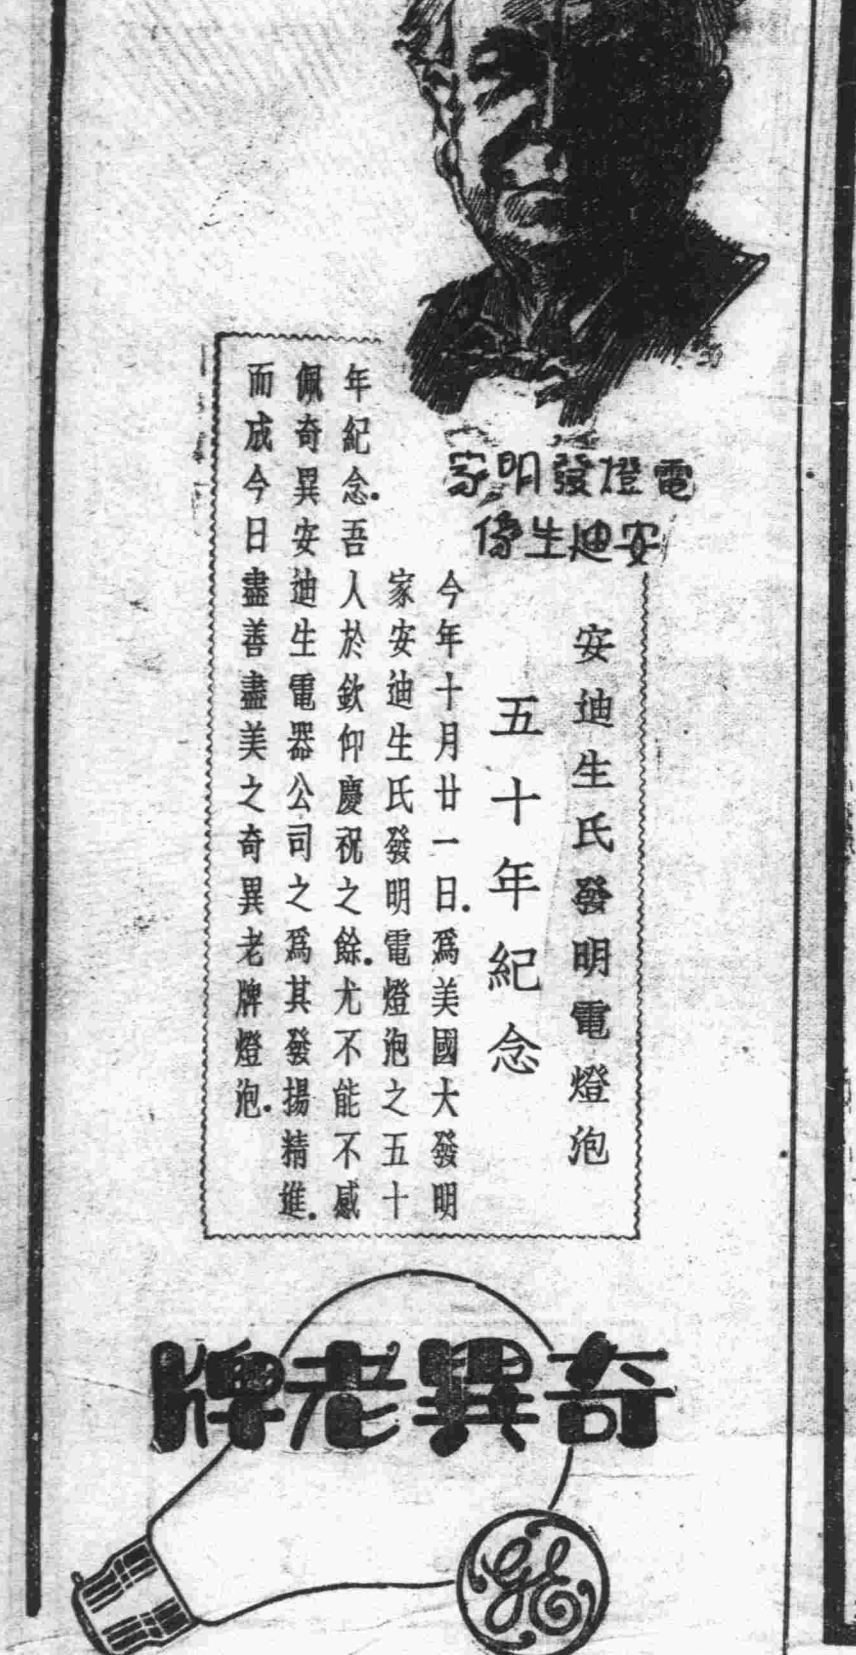 電燈發明家
安迪生像
安迪生氏發明電燈泡
五十年紀念
今年十月廿一日.爲美國大發明
家安迪生氏發明電燈泡之五十
年紀念.吾人於欽仰慶祝之餘.尤不能不感
佩奇異安迪生電器公司之爲其發揚精進.
而成今日盡善盡美之奇異老牌燈泡.
奇異老牌
GE